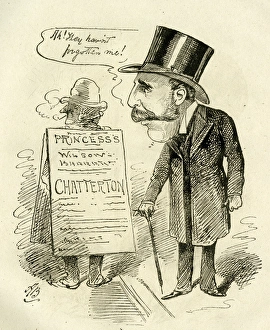 Ah! They havn't
forgotten me!
PRINCESS'S
WILSON
BARRETT
CHATTERTON